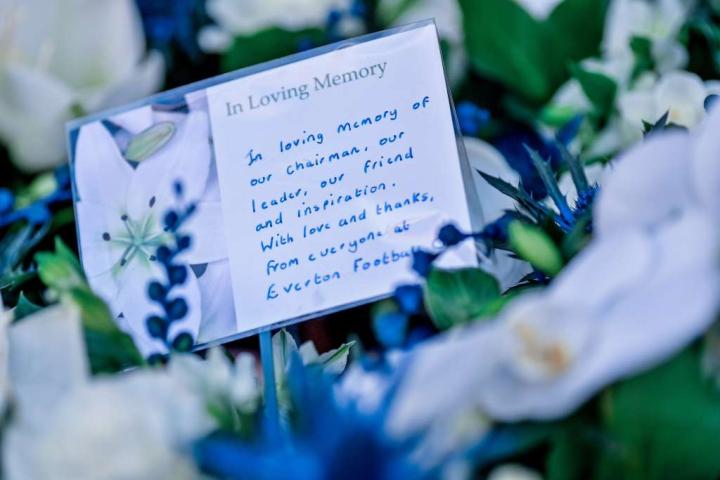 In Loving Memory
In loving memory of
our chairman, our
leader, our friend
and inspiration.
With love and thanks,
from everyone at
Everton